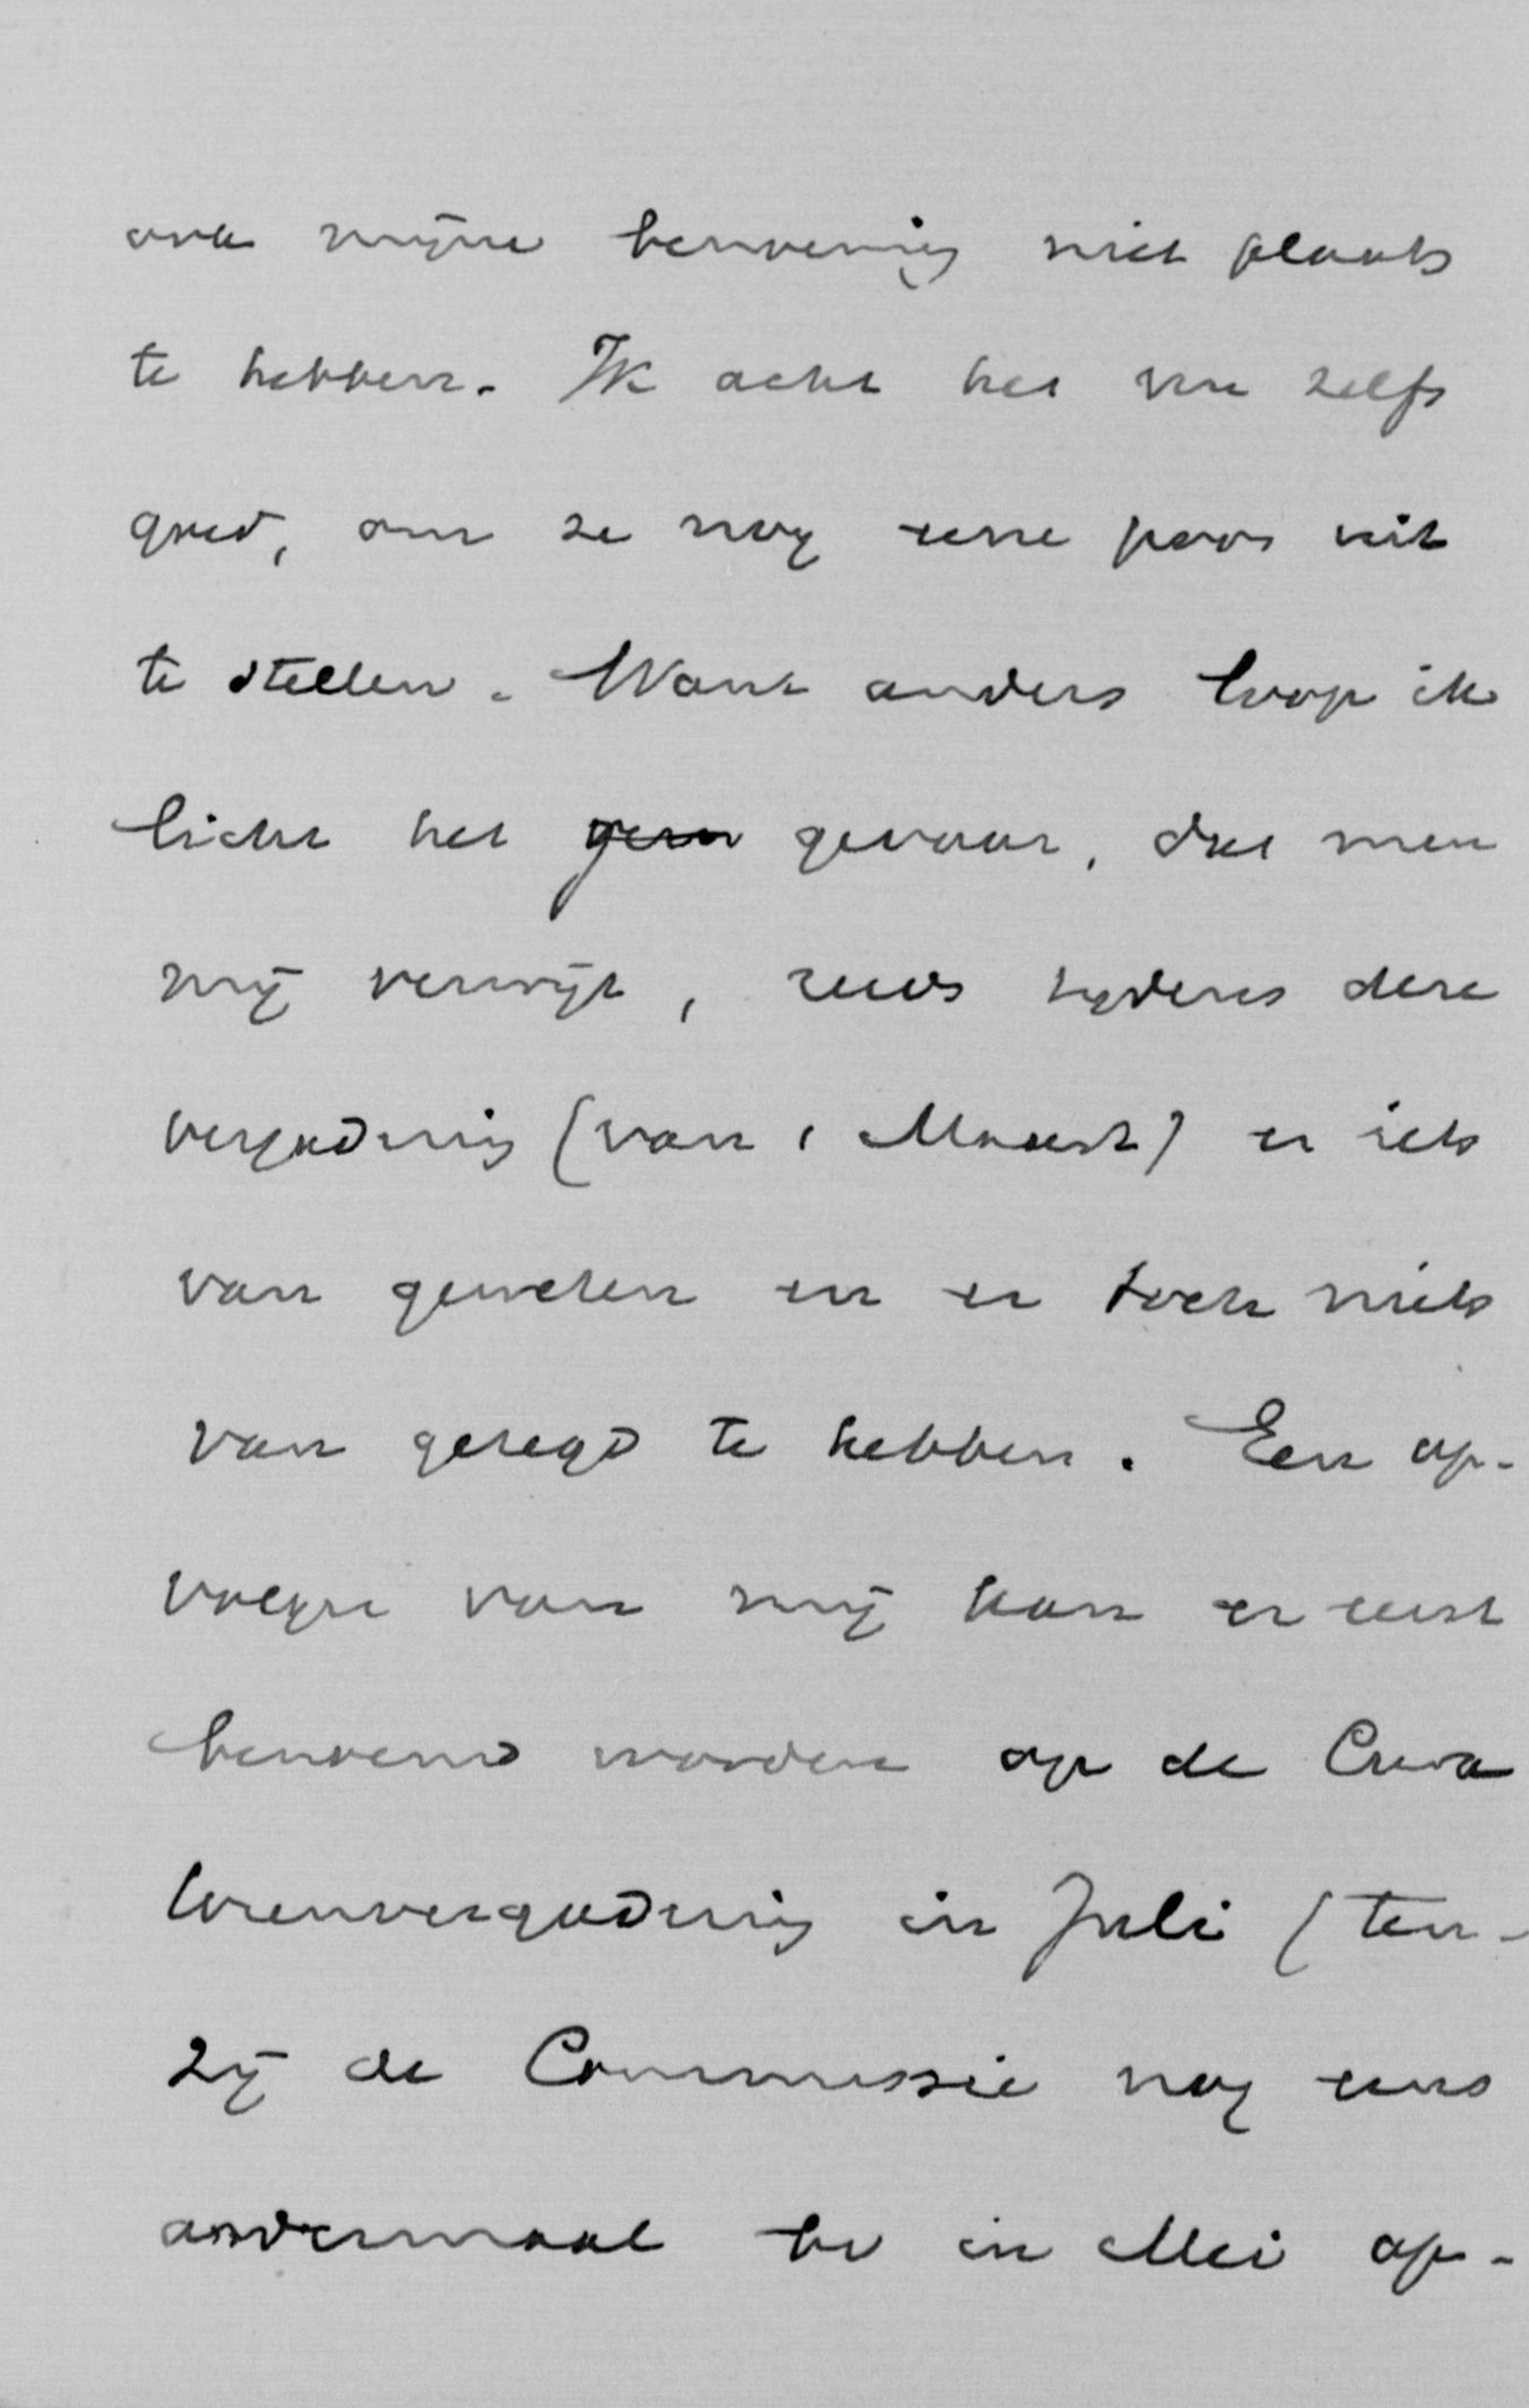 over mijne benoeming niet plaats
te hebben. Ik acht het van zelfs
goed, om ze nog eene poos uit
te stellen. Want anders loop ik
licht het gevaar, dat men
mij verwijt, reeds tijdens deze
vergadering (van 1 Maart) er iets
van geweten en er toch niets
van gezegd te hebben. Een op-
volger van mij kan er eerst
benoemd worden op de Cura
torenvergadering in Juli (ten-
zij de Commissie nog eens
andermaal bv in Mei op-